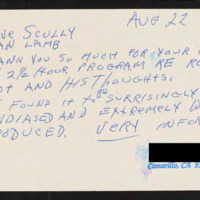 AUG 22
VE SCULLY
AN LAMB
ANK YOU SO MUCH FOR YOUR
2½ HOUR PROGRAM RE RO
OT AND HIS THOUGHTS.
FOUND IT TO BE SURRISINGLY
NDIASED AND EXTREMELY W
ODUCED. VERY INFOR
Camarillo, CA 9